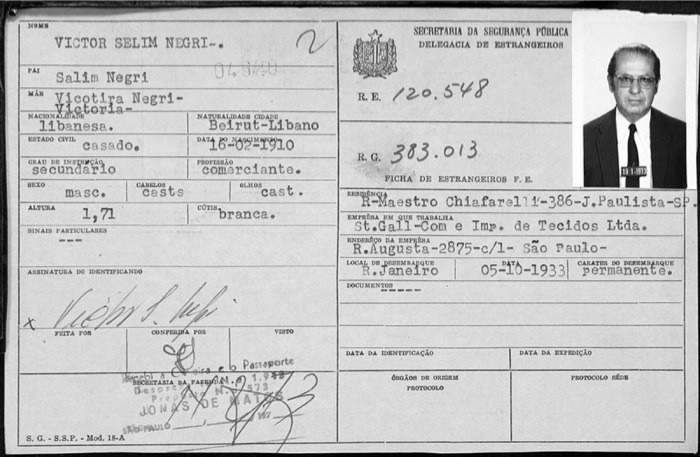 NOME
VICTOR SELIM NEGRI-.
2
PAI
Salim Negri
MÃE
Vicotira Negri-
Victoria-
NACIONALIDADE
libanesa.
NATURALIDADE CIDADE
Beirut-Libano
ESTADO CIVIL
casado.
DATA DO NASCIMENTO
16-02-1910
GRAU DE INSTRUÇÃO
secundário
PROFISSÃO
comerciante.
SEXO
masc.
CABELOS
casts
OLHOS
cast.
ALTURA
1,71
CÚTIS
branca.
SINAIS PARTICULARES
---
ASSINATURA DO IDENTIFICANDO
x Victor S. Negri
FEITA POR
CONFERIDA POR
VISTO
Recebi a Carteira e o Passaporte
SECRETARIA DA FAZENDA
JONAS DE MATOS
SÃO PAULO
197
S. G. - S.S.P. - Mod. 18-A
SECRETARIA DA SEGURANÇA PÚBLICA
DELEGACIA DE ESTRANGEIROS
R. E. 120.548
R. G. 383.013
FICHA DE ESTRANGEIROS F. E.
RESIDÊNCIA
R-Maestro Chiafarelli-386-J.Paulista-SP.
EMPRÊSA EM QUE TRABALHA
St.Gall-Com e Imp. de Tecidos Ltda.
ENDERÊÇO DA EMPRÊSA
R.Augusta-2875-c/1- São Paulo-
LOCAL DE DESEMBARQUE
R.Janeiro
DATA
05-10-1933
CARATER DO DESEMBARQUE
permanente.
DOCUMENTOS
-----
DATA DA IDENTIFICAÇÃO
DATA DA EXPEDIÇÃO
ÓRGÃOS DE ORIGEM
PROTOCOLO
PROTOCOLO SÉDE